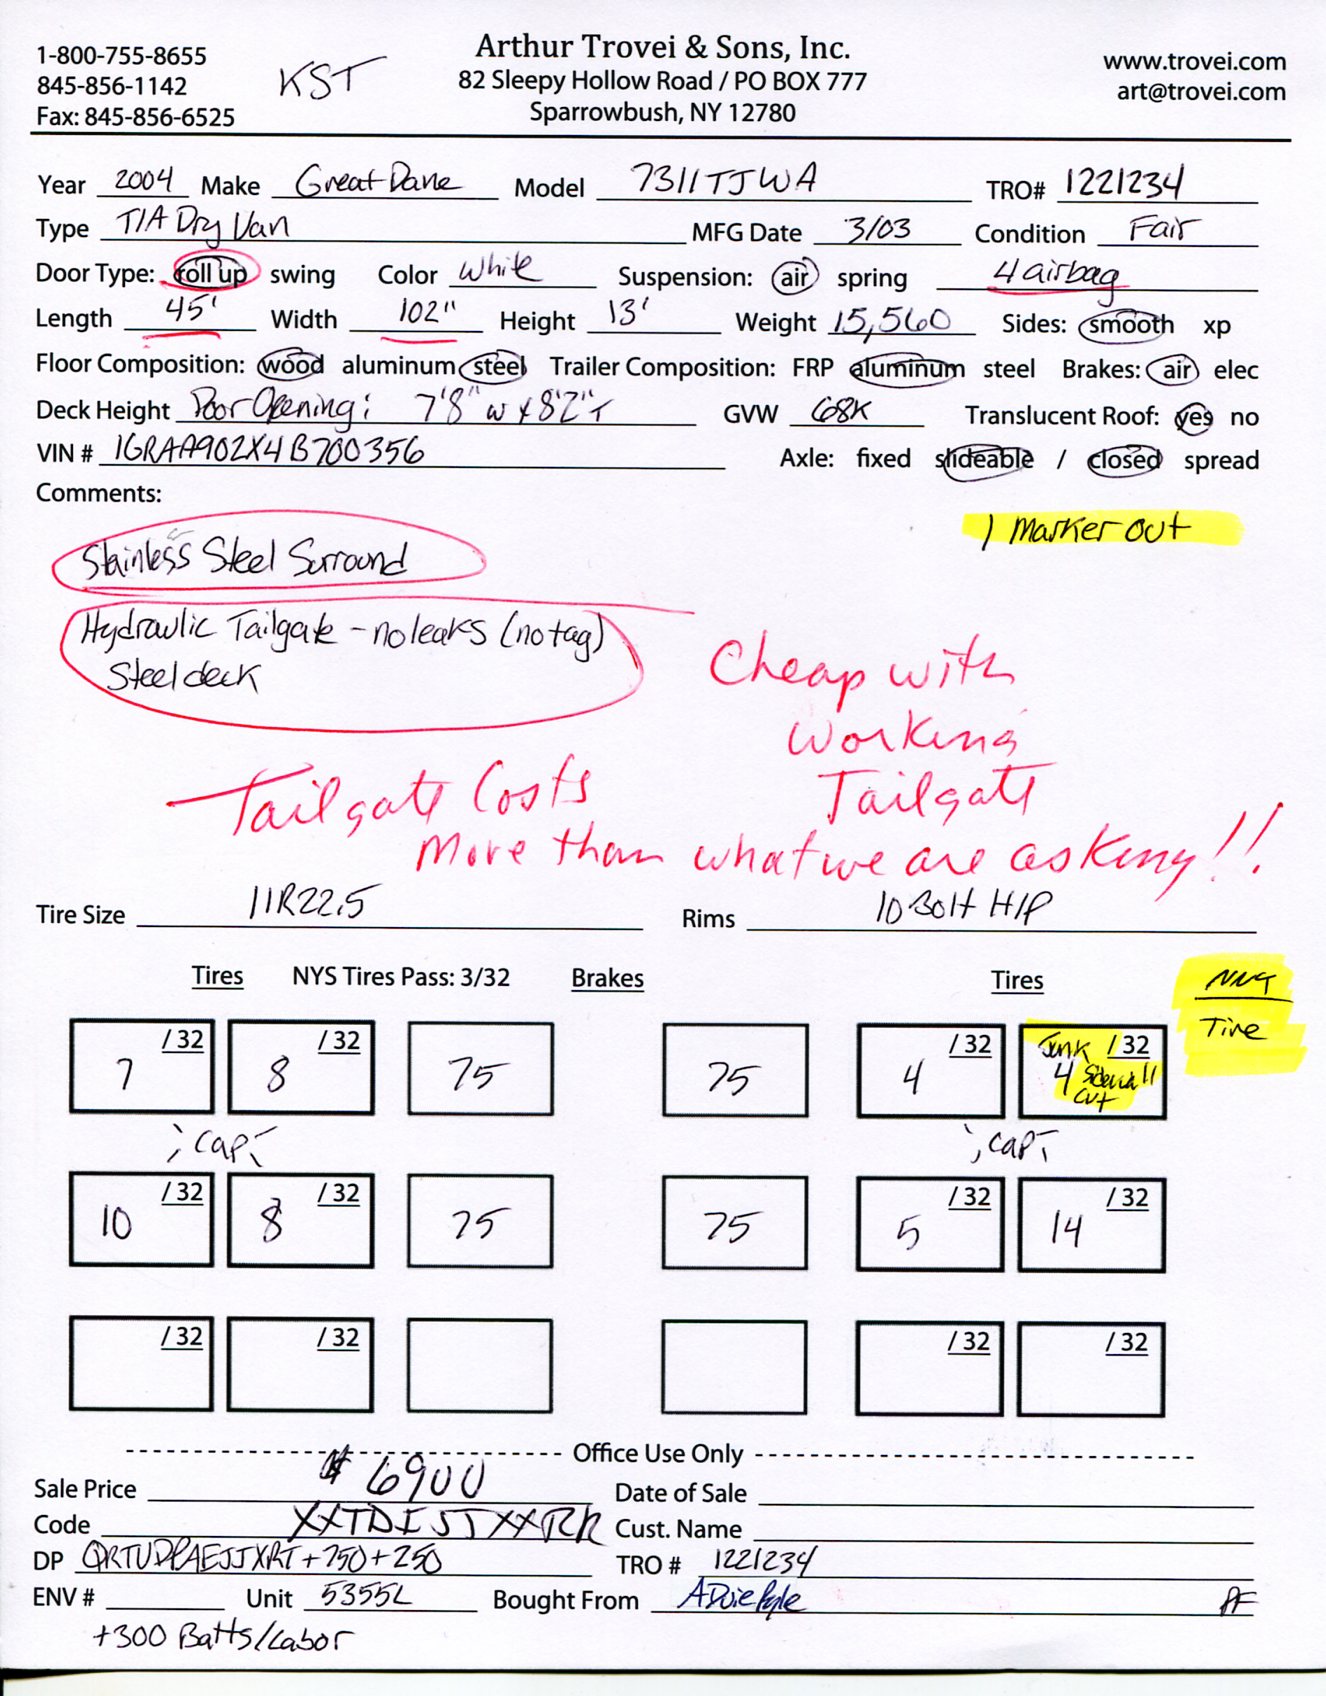 Arthur Trovei & Sons, Inc.
1-800-755-8655
845-856-1142
Fax: 845-856-6525
KST
82 Sleepy Hollow Road / PO BOX 777
Sparrowbush, NY 12780
www.trovei.com
art@trovei.com
Year 2004 Make Great Dane Model 7311TJWA TRO# 1221234
Type T/A Dry Van MFG Date 3/03 Condition Fair
Door Type: roll up swing Color White Suspension: air spring 4 airbag
Length 45' Width 102" Height 13' Weight 15,560 Sides: smooth xp
Floor Composition: wood aluminum steel Trailer Composition: FRP aluminum steel Brakes: air elec
Deck Height Door Opening: 7'8" w x 8'2" T GVW 68K Translucent Roof: yes no
VIN # 1GRAA902X4B700356 Axle: fixed slideable / closed spread
Comments:
1 Marker out
Stainless Steel Surround
Hydraulic Tailgate - no leaks (no tag)
Steel deck
Cheap with
Working
Tailgate
Tailgate Costs
More than what we are asking!!
Tire Size 11R22.5 Rims 10 Bolt H/P
Tires NYS Tires Pass: 3/32 Brakes Tires
Tire
7 /32 8 /32 75 75 4 /32 Junk /32
4 Sidewall
cut
; cap; ; cap;
10 /32 8 /32 75 75 5 /32 14 /32
/32 /32 /32 /32
Office Use Only
Sale Price $6900 Date of Sale
Code XXTDISJXXRR Cust. Name
DP +750+250 TRO # 1221234
ENV # Unit 5355L Bought From
+300 Batts/Labor